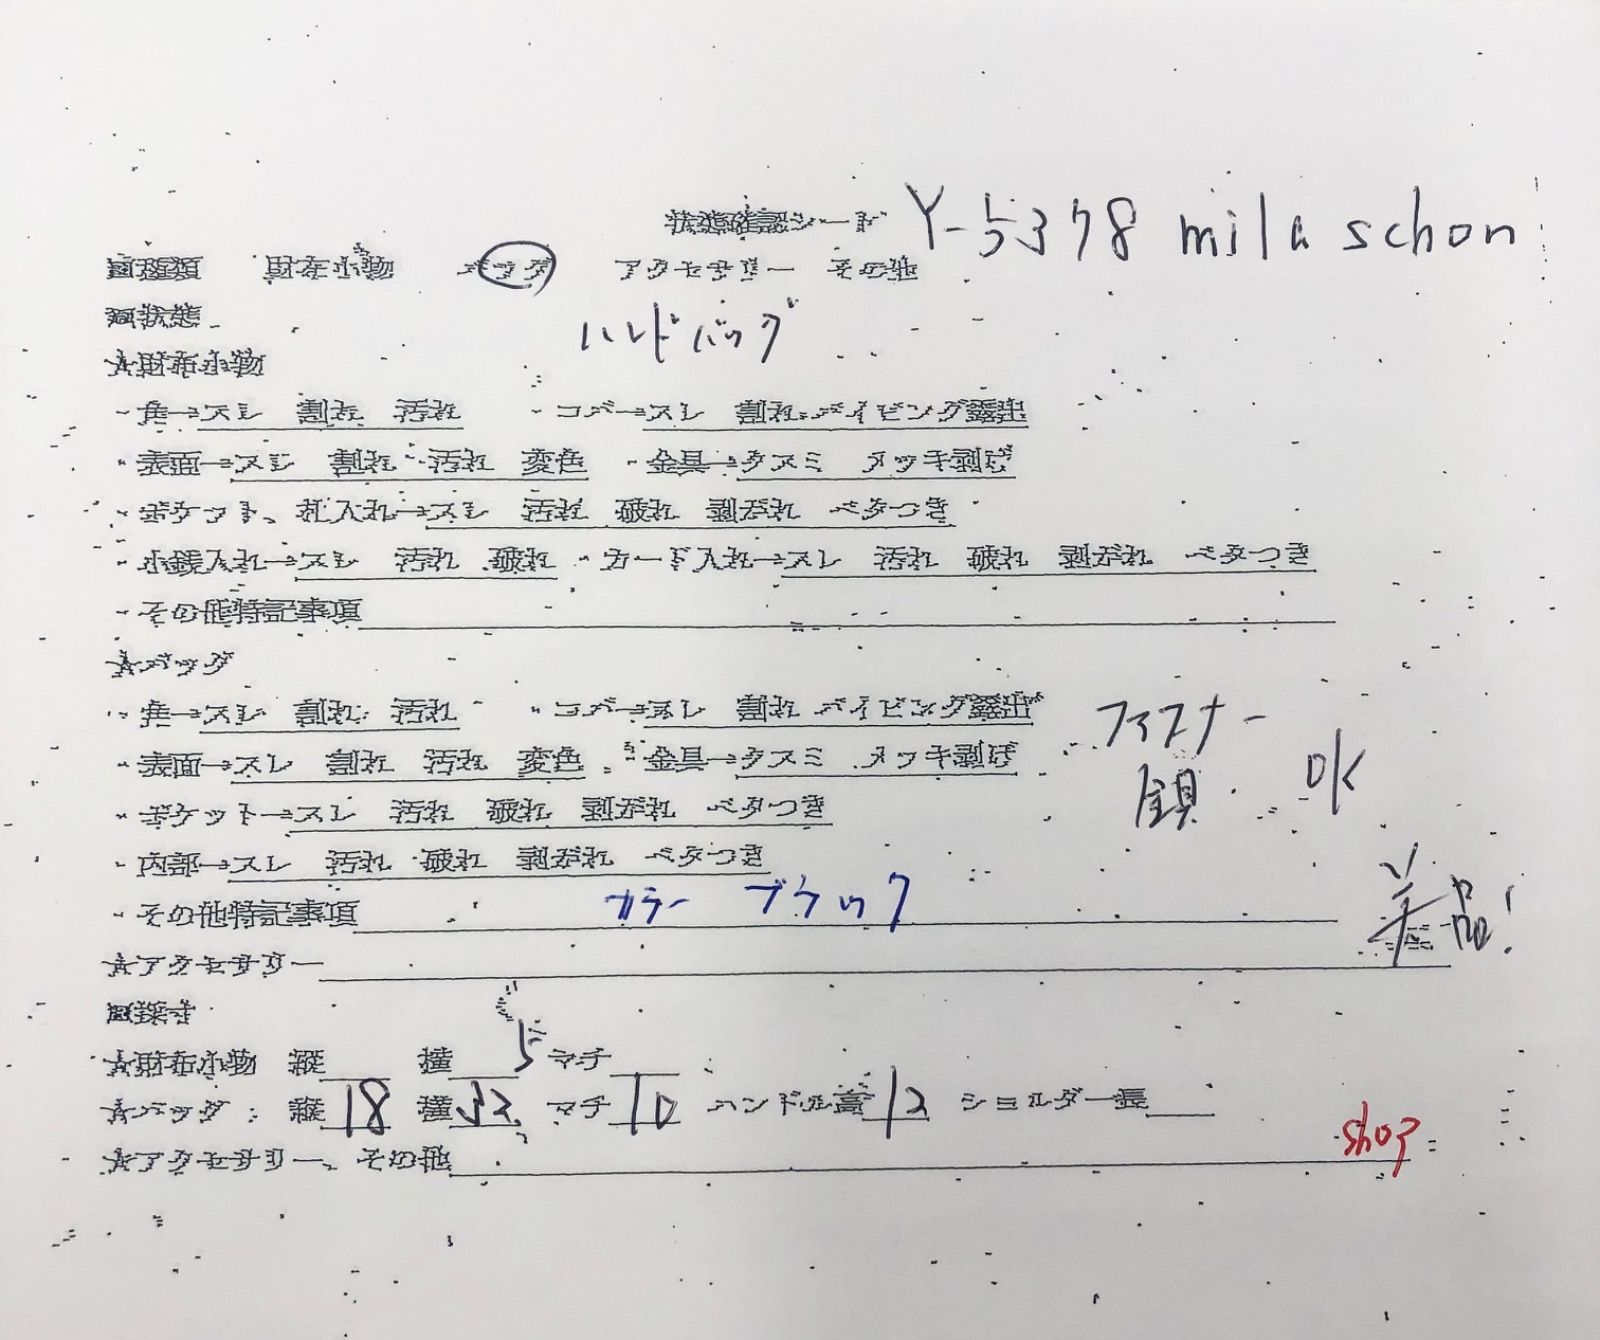 状態確認シート Y-5378 mila schon
□種類 財布小物 バッグ アクセサリー その他
□状態
ハンドバッグ
★財布小物
・角→スレ 割れ 汚れ ・コバ→スレ 割れ パイピング露出
・表面→スレ 割れ 汚れ 変色 ・金具→クスミ メッキ剥げ
・ポケット、札入れ→スレ 汚れ 破れ 剥がれ ベタつき
・小銭入れ→スレ 汚れ 破れ ・カード入れ→スレ 汚れ 破れ 剥がれ ベタつき
・その他特記事項
★バッグ
・角→スレ 割れ 汚れ ・コバ→スレ 割れ パイピング露出
・表面→スレ 割れ 汚れ 変色 ・金具→クスミ メッキ剥げ
ファスナー
金具 OK
・ポケット→スレ 汚れ 破れ 剥がれ ベタつき
・内部→スレ 汚れ 破れ 剥がれ ベタつき
・その他特記事項 カラー ブラック
美品!
★アクセサリー
□採寸
★財布小物 縦 横 マチ
★バッグ 縦18 横32 マチ10 ハンドル高12 ショルダー長
★アクセサリー、その他
shop